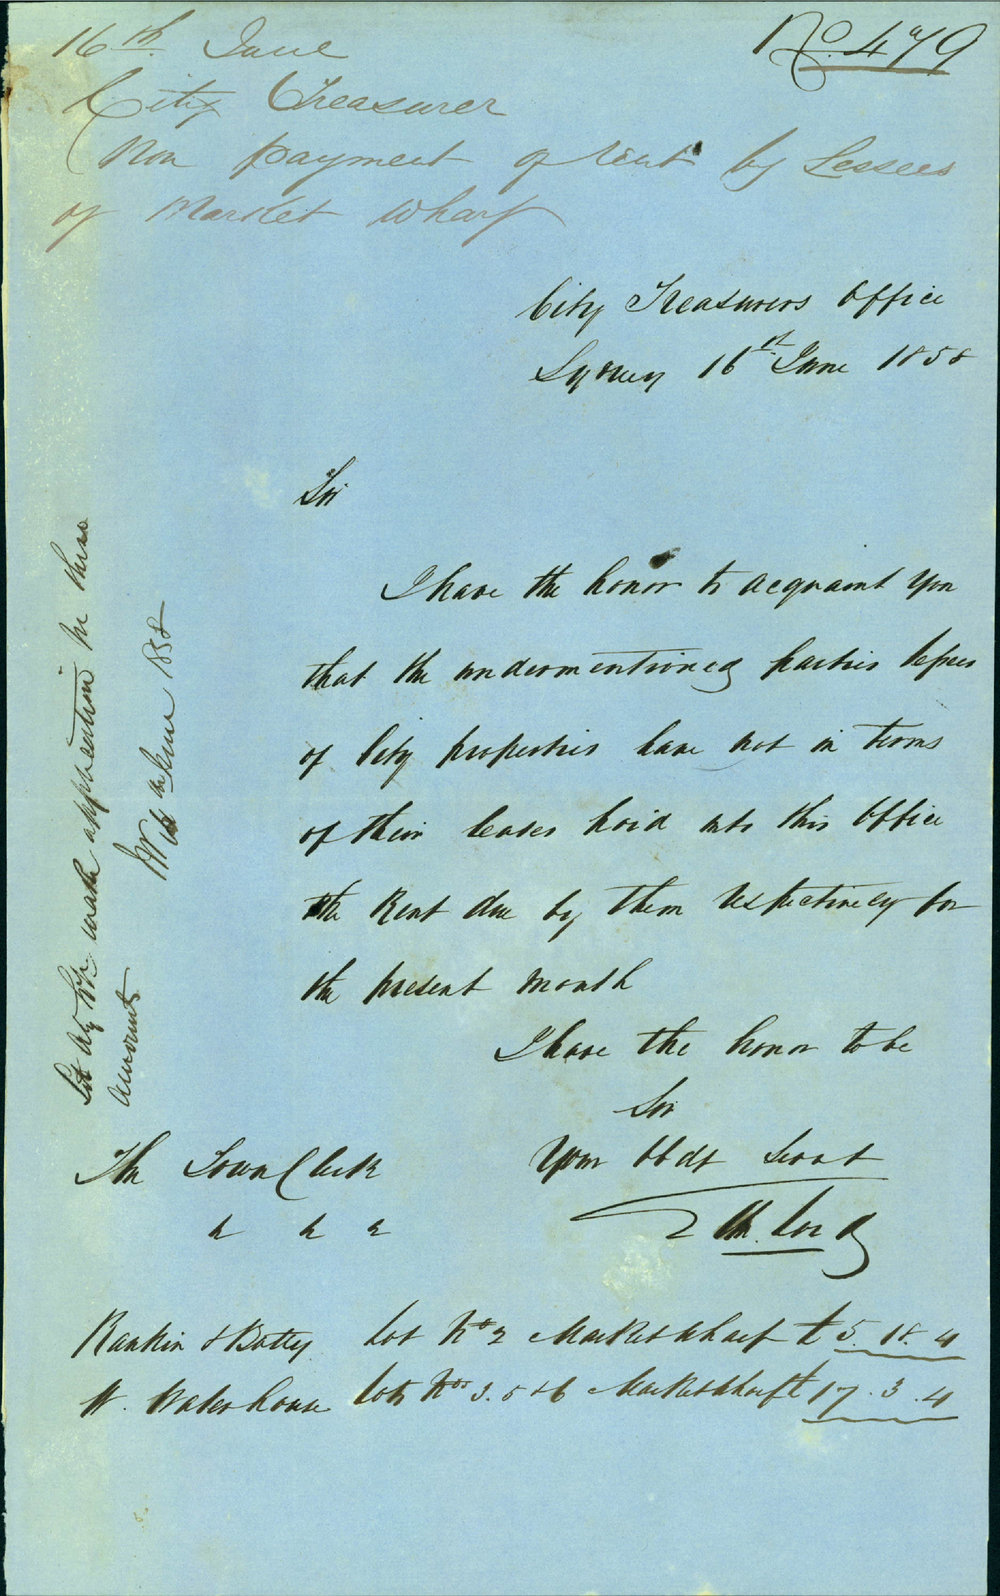 16th June
No. 479
City Treasurer
Non payment of rent by Lessees
of Market Wharf
City Treasurers Office
Sydney 16st June 1858
Sir
I have the honor to acquaint you
that the undermentioned parties lessees
of City properties have not in terms
of their leases paid into this Office
the Rent due by them respectively for
the present month
I have the honor to be
Sir
Your Obdt Servt
Lord
The Town Clerk
&c &c &c
Rankin & Batty Lot No 2 Market Wharf £ 5. 18. 4
W. Waterhouse Lots Nos 3. 5 & 6 Market Wharf £ 17. 3. 4
Let make application for these
amounts
June 1858